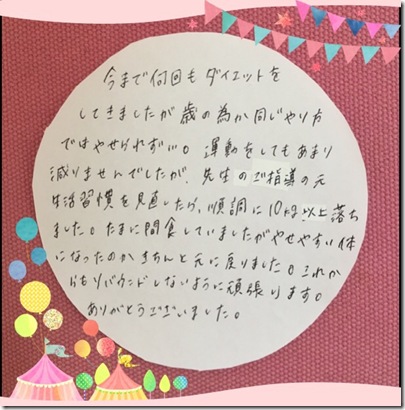 今まで何回もダイエットを
してきましたが歳の為か同じやり方
ではやせられずい。運動をしてもあまり
減りませんでしたが、先生のご指導の元
生活習慣を見直したら、順調に10kg以上落ち
ました。たまに間食していましたがやせやすい体
になったのかきちんと元に戻りました。これか
らもリバウンドしないように頑張ります。
ありがとうございました。